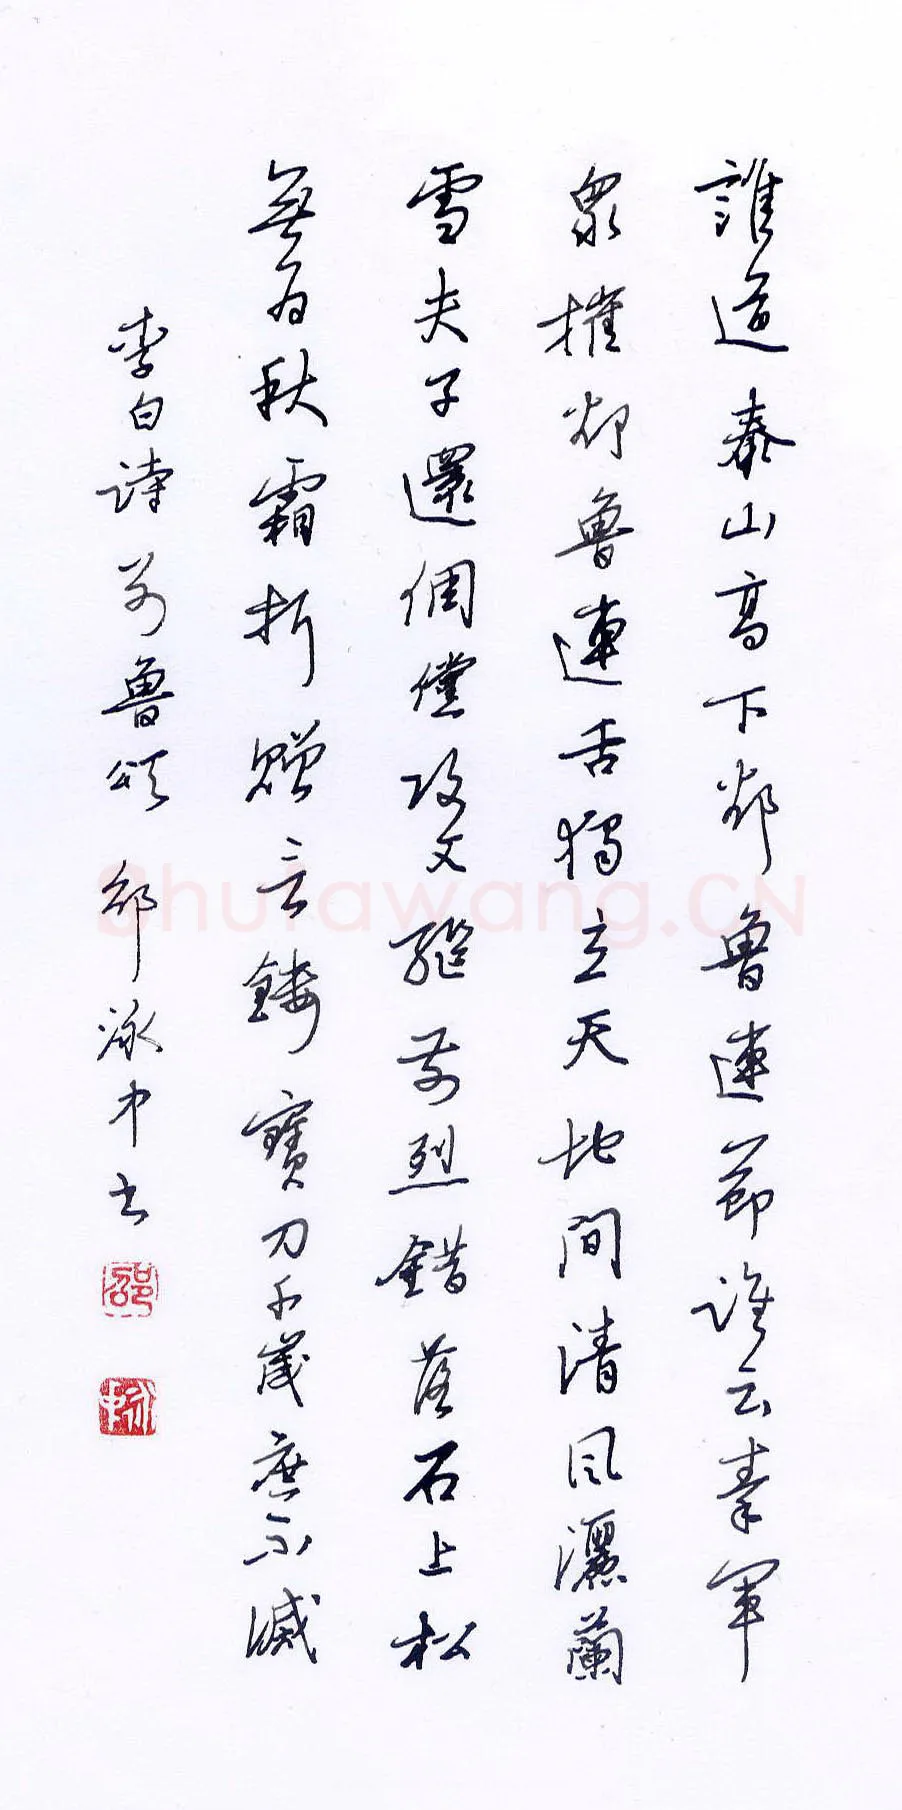 誰道泰山高下卻魯連節誰云秦軍
眾摧卻魯連舌獨立天地間清風灑蘭
雪夫子還倜儻攻文繼前烈錯落石上松
無為秋霜折贈言鏤寶刀千歲庶不滅
李白詩別魯頌 邵泳中書
邵
Shufawang.CN